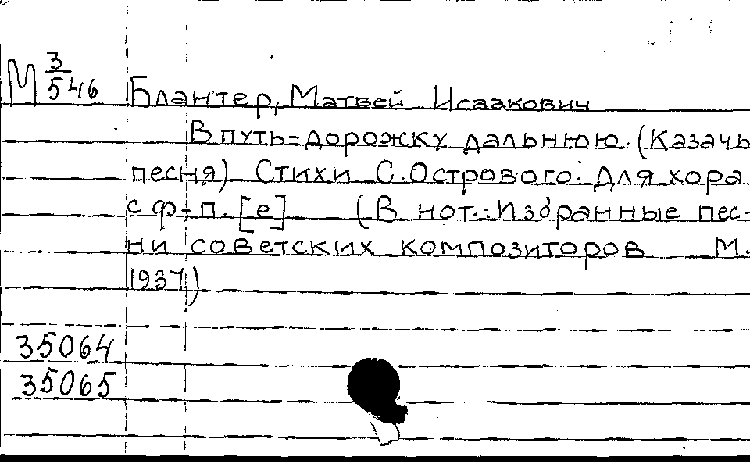 М 3/546 Блантер, Матвей Исаакович
В путь-дорожку дальнюю. (Казачь
песня) Стихи С. Острового. Для хора
с ф-п. [е] (В нот.: Избранные пес-
ни советских композиторов М.
1937)
35064
35065